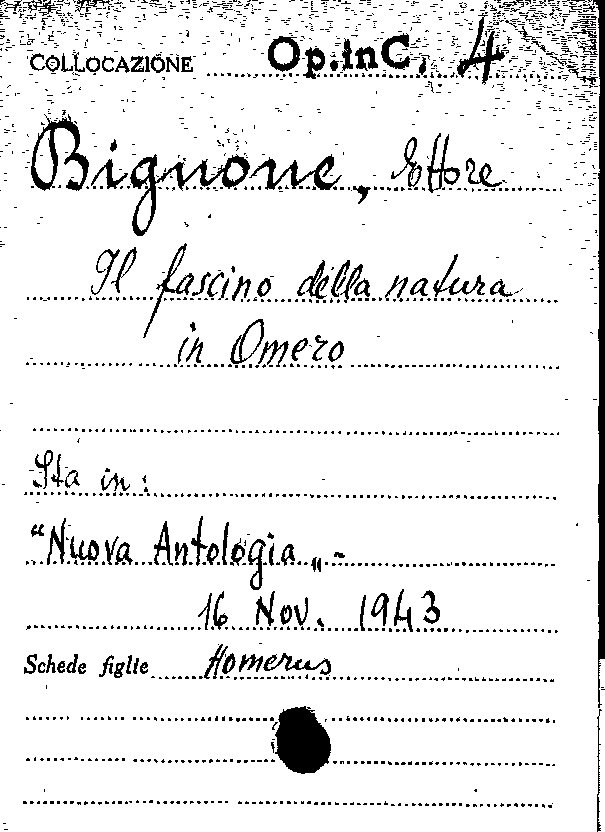 COLLOCAZIONE Op.inC. 4
Bignone, Ettore
Il fascino della natura
in Omero
Sta in:
“Nuova Antologia„-
16 Nov. 1943
Schede figlie Homerus